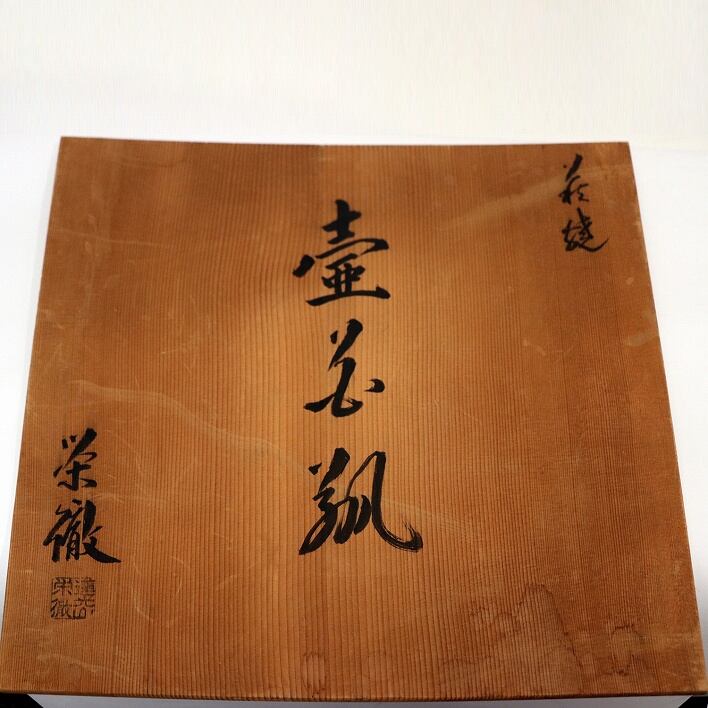 萩焼
壷花瓶
栄徹